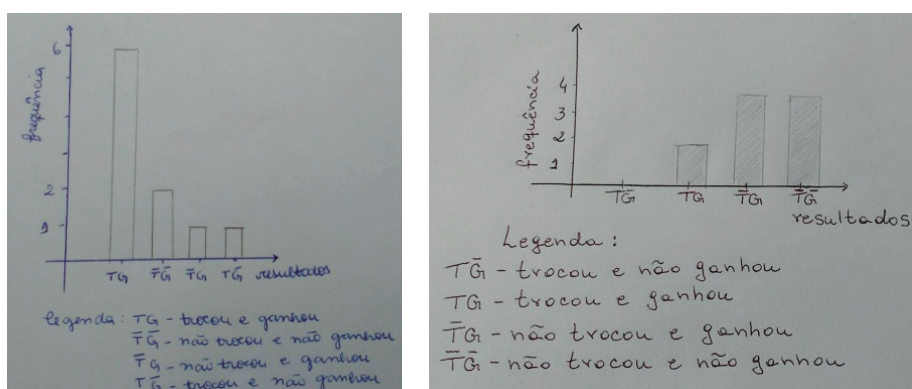 frequência
6
2
1
TG T̄Ḡ T̄G TḠ resultados
legenda: TG - trocou e ganhou
T̄Ḡ - não trocou e não ganhou
T̄G - não trocou e ganhou
TḠ - trocou e não ganhou
frequência
4
3
2
1
TḠ TG T̄G T̄Ḡ
resultados
Legenda:
TḠ - trocou e não ganhou
TG - trocou e ganhou
T̄G - não trocou e ganhou
T̄Ḡ - não trocou e não ganhou